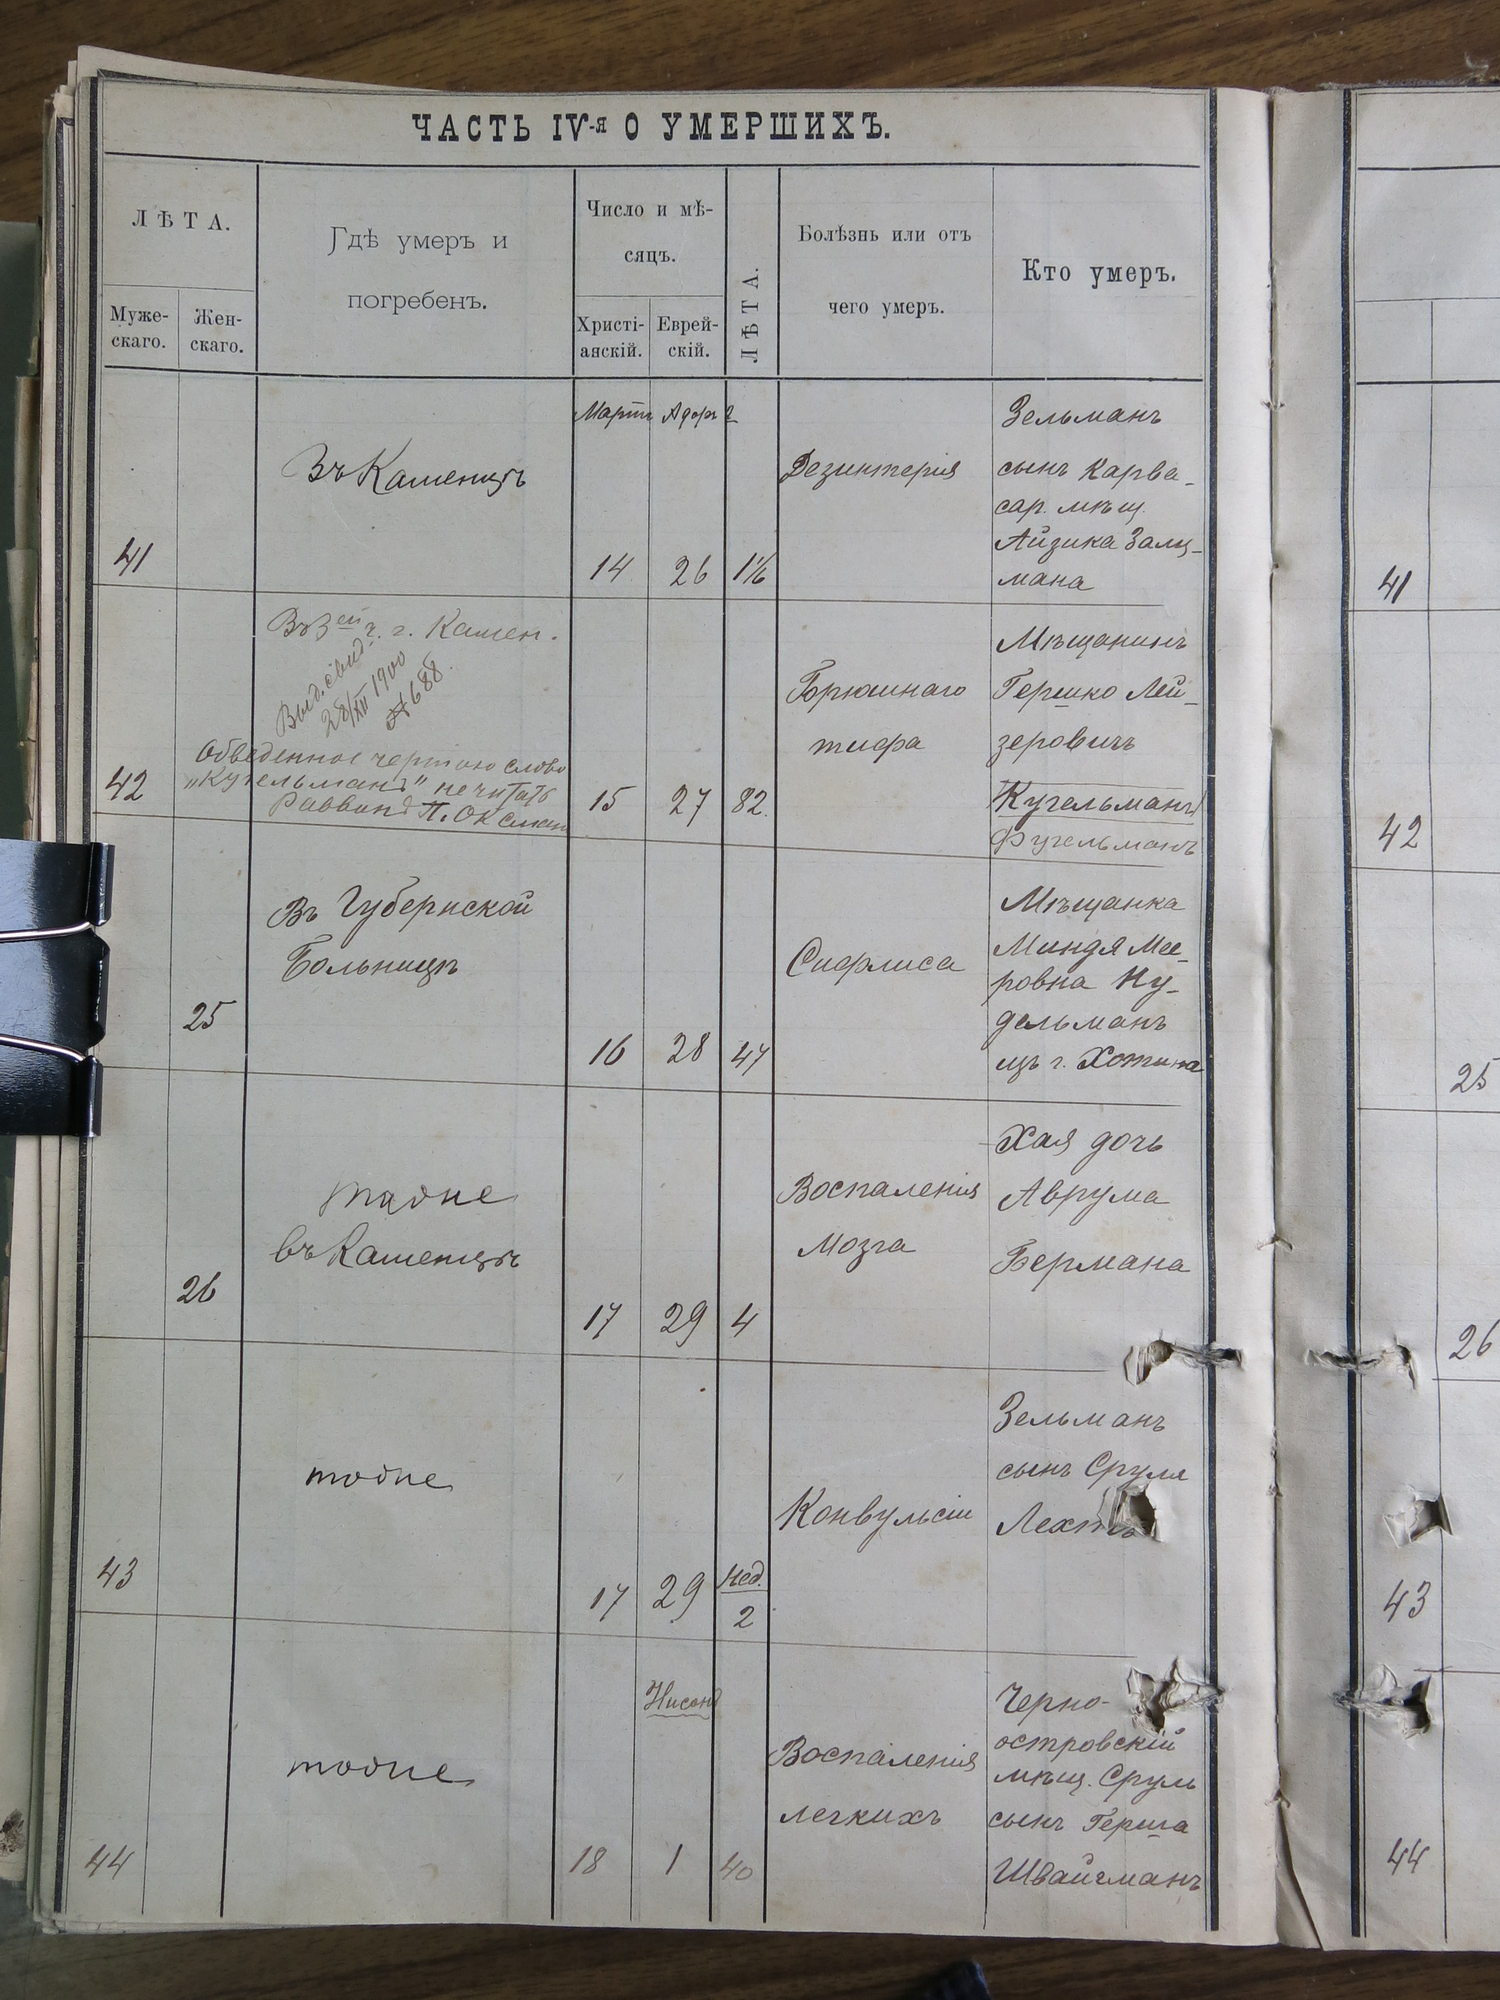 ЧАСТЬ IV-я О УМЕРШИХЪ.
ЛѢТА.
Муже-
скаго.
Жен-
скаго.
Гдѣ умеръ и
погребенъ.
Число и мѣ-
сяцъ.
Христі-
анскій.
Еврей-
скій.
ЛѢТА.
Болѣзнь или отъ
чего умеръ.
Кто умеръ.
41
Въ Каменцѣ
Мартъ
14
Адоръ 2
26
1½
Дезинтерія
Зельманъ
сынъ Карва-
сар. мѣщ.
Айзика Залц-
мана
41
42
Въ 3ей ч. г. Камен.
Выд. свид.
28/XII 1900
№ 688.
Обведенное чертою слово
„Кугельманъ" не читать
Раввинъ П. Оксман
15
27
82
Брюшнаго
тифа
Мѣщанинъ
Гершко Лей-
зеровичъ
Кугельманъ
Фугельманъ
42
25
Въ Губернской
Больницѣ
16
28
47
Сифлиса
Мѣщанка
Миндя Мее-
ровна Ну-
дельманъ
изъ г. Хотина
25
26
тоже
въ Каменцѣ
17
29
4
Воспаленія
мозга
Хая дочь
Аврума
Бермана
26
43
тоже
17
29
Нед.
2
Конвульсіи
Зельманъ
сынъ Сруля
43
44
тоже
18
Нисанъ
1
40
Воспаленія
легкихъ
Черно-
островскій
мѣщ. Сруль
сынъ Герша
Швайгманъ
44